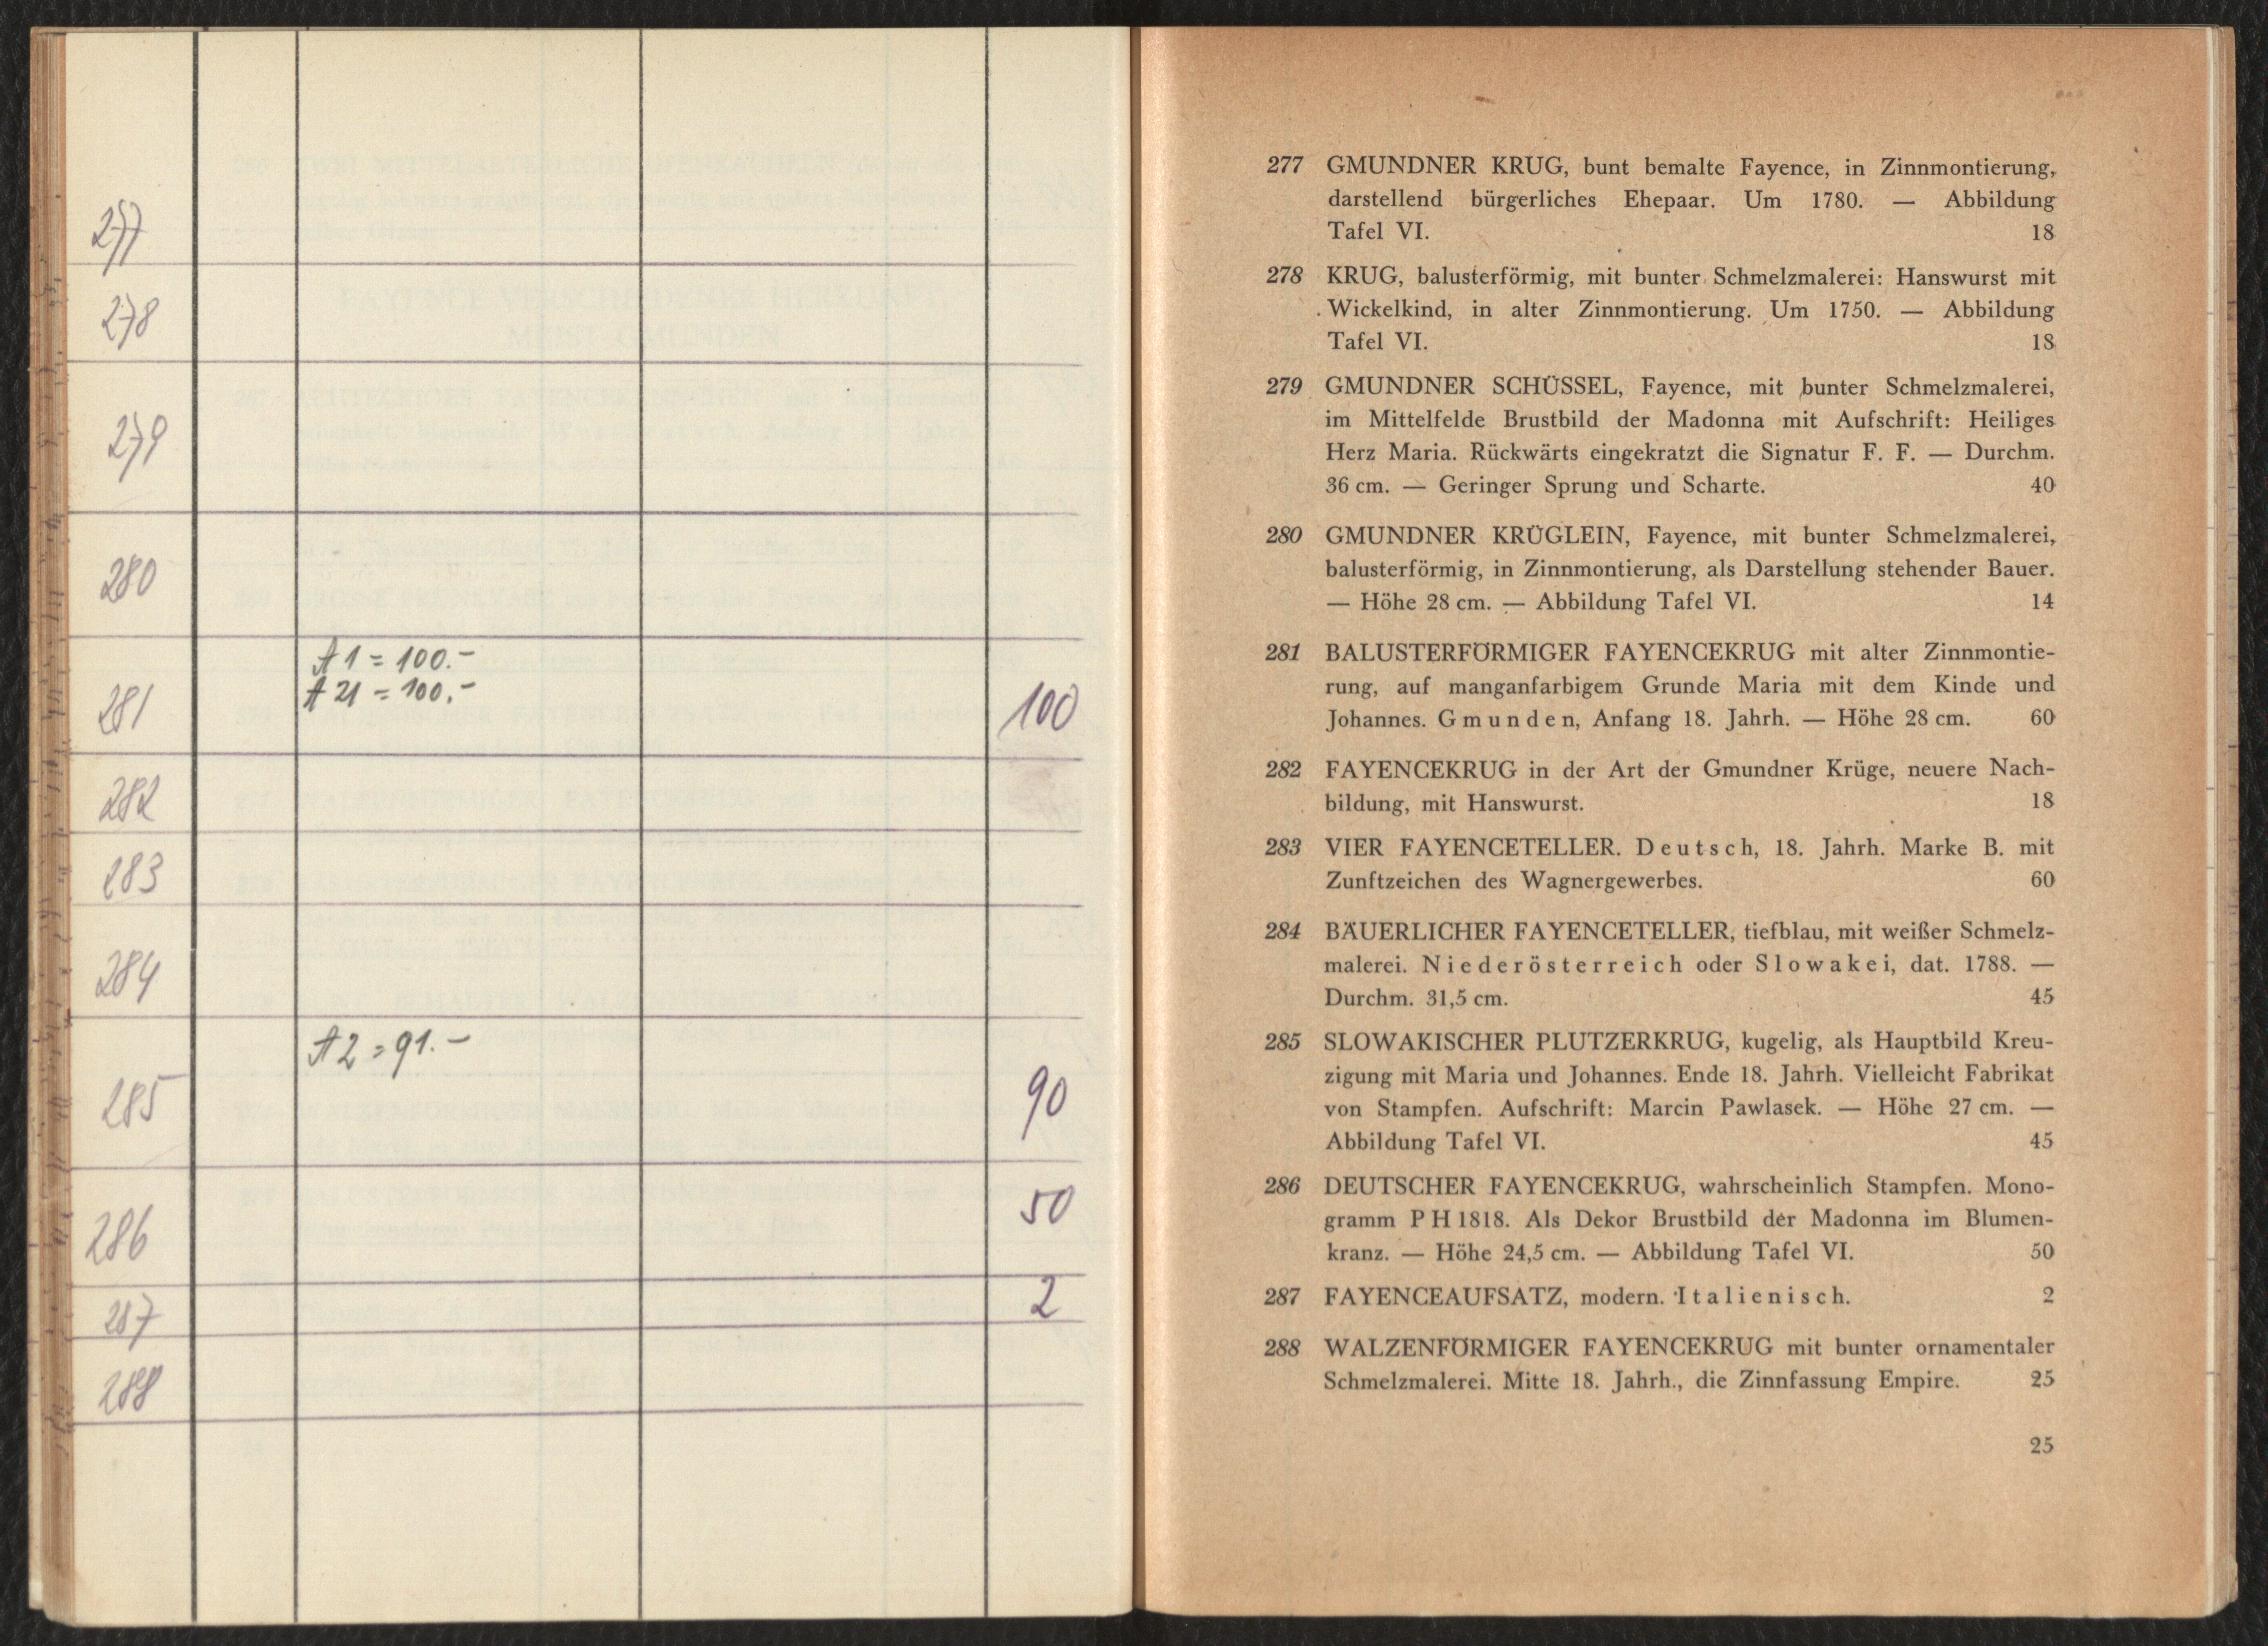 277
278
279
280
A 1 = 100.-
A 21 = 100.-
281 100
282
283
284
A 2 = 91.-
285 90
286 50
287 2
288
277 GMUNDNER KRUG, bunt bemalte Fayence, in Zinnmontierung,
darstellend bürgerliches Ehepaar. Um 1780. — Abbildung
Tafel VI. 18
278 KRUG, balusterförmig, mit bunter Schmelzmalerei: Hanswurst mit
Wickelkind, in alter Zinnmontierung. Um 1750. — Abbildung
Tafel VI. 18
279 GMUNDNER SCHÜSSEL, Fayence, mit bunter Schmelzmalerei,
im Mittelfelde Brustbild der Madonna mit Aufschrift: Heiliges
Herz Maria. Rückwärts eingekratzt die Signatur F. F. — Durchm.
36 cm. — Geringer Sprung und Scharte. 40
280 GMUNDNER KRÜGLEIN, Fayence, mit bunter Schmelzmalerei,
balusterförmig, in Zinnmontierung, als Darstellung stehender Bauer.
— Höhe 28 cm. — Abbildung Tafel VI. 14
281 BALUSTERFÖRMIGER FAYENCEKRUG mit alter Zinnmontie-
rung, auf manganfarbigem Grunde Maria mit dem Kinde und
Johannes. Gmunden, Anfang 18. Jahrh. — Höhe 28 cm. 60
282 FAYENCEKRUG in der Art der Gmundner Krüge, neuere Nach-
bildung, mit Hanswurst. 18
283 VIER FAYENCETELLER. Deutsch, 18. Jahrh. Marke B. mit
Zunftzeichen des Wagnergewerbes. 60
284 BÄUERLICHER FAYENCETELLER, tiefblau, mit weißer Schmelz-
malerei. Niederösterreich oder Slowakei, dat. 1788. —
Durchm. 31,5 cm. 45
285 SLOWAKISCHER PLUTZERKRUG, kugelig, als Hauptbild Kreu-
zigung mit Maria und Johannes. Ende 18. Jahrh. Vielleicht Fabrikat
von Stampfen. Aufschrift: Marcin Pawlasek. — Höhe 27 cm. —
Abbildung Tafel VI. 45
286 DEUTSCHER FAYENCEKRUG, wahrscheinlich Stampfen. Mono-
gramm P H 1818. Als Dekor Brustbild der Madonna im Blumen-
kranz. — Höhe 24,5 cm. — Abbildung Tafel VI. 50
287 FAYENCEAUFSATZ, modern. Italienisch. 2
288 WALZENFÖRMIGER FAYENCEKRUG mit bunter ornamentaler
Schmelzmalerei. Mitte 18. Jahrh., die Zinnfassung Empire. 25
25